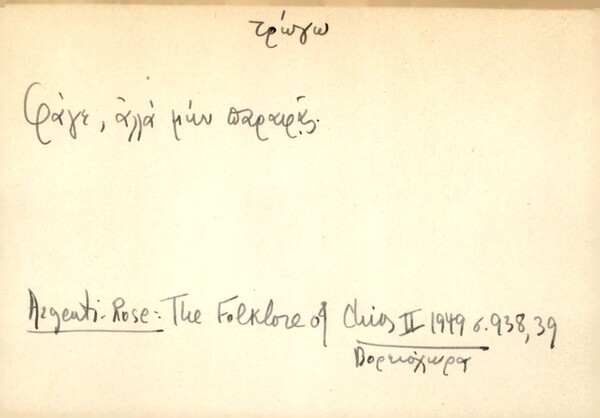 τρώγω
Φάγε, ἀλλὰ μὴν παραφᾶς.
Argenti-Rose: The Folklore of Chios II 1949 σ. 938, 39
Βορειόχωρα